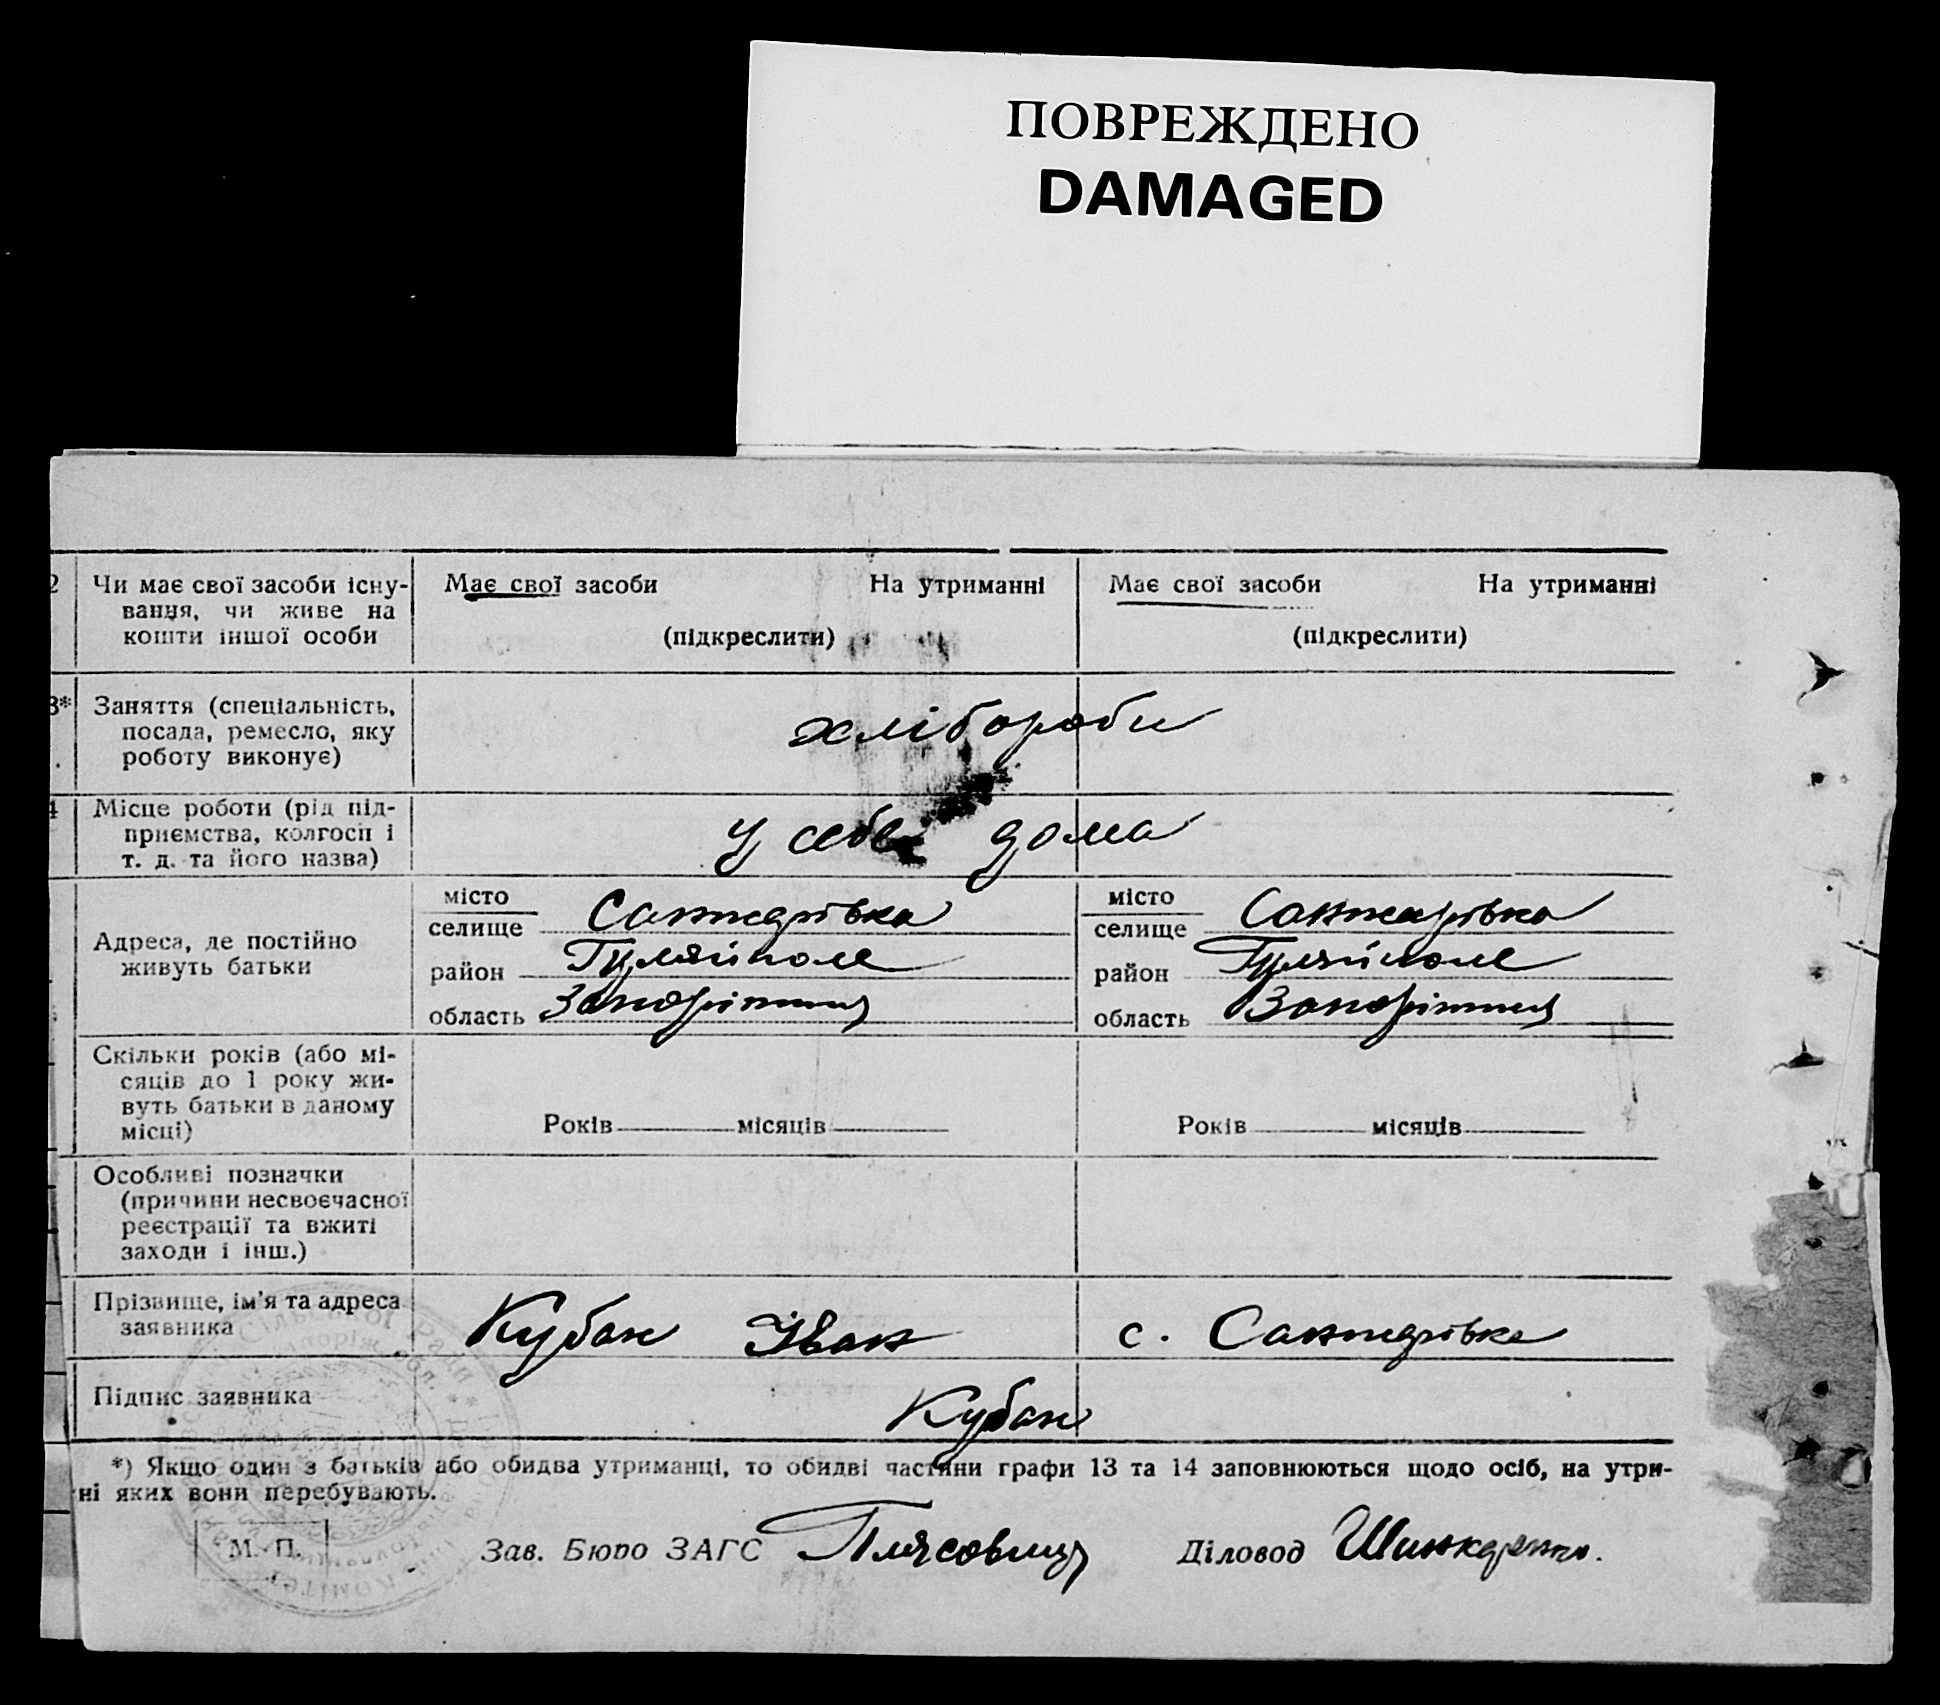 ПОВРЕЖДЕНО
DAMAGED
2 Чи має свої засоби існу-
вання, чи живе на
кошти іншої особи
Має свої засоби На утриманні
(підкреслити)
Має свої засоби На утриманні
(підкреслити)
3* Заняття (спеціальність,
посада, ремесло, яку
роботу виконує)
хлібороби
4 Місце роботи (рід під-
приємства, колгосп і
т. д. та його назва)
у себе дома
Адреса, де постійно
живуть батьки
місто
селище Санжарівка
район Гуляйполе
область Запоріжжя
місто
селище Санжарівка
район Гуляйполе
область Запоріжжя
Скільки років (або мі-
сяців до 1 року жи-
вуть батьки в даному
місці)
Років місяців
Років місяців
Особливі позначки
(причини несвоєчасної
реєстрації та вжиті
заходи і інш.)
Прізвище, ім'я та адреса
заявника
Кубан Іван с. Санжарівка
Підпис заявника
Кубан
*) Якщо один з батьків або обидва утриманці, то обидві частини графи 13 та 14 заповнюються щодо осіб, на утри-
ні яких вони перебувають.
М. П. Зав. Бюро ЗАГС Діловод Шинкаренко.